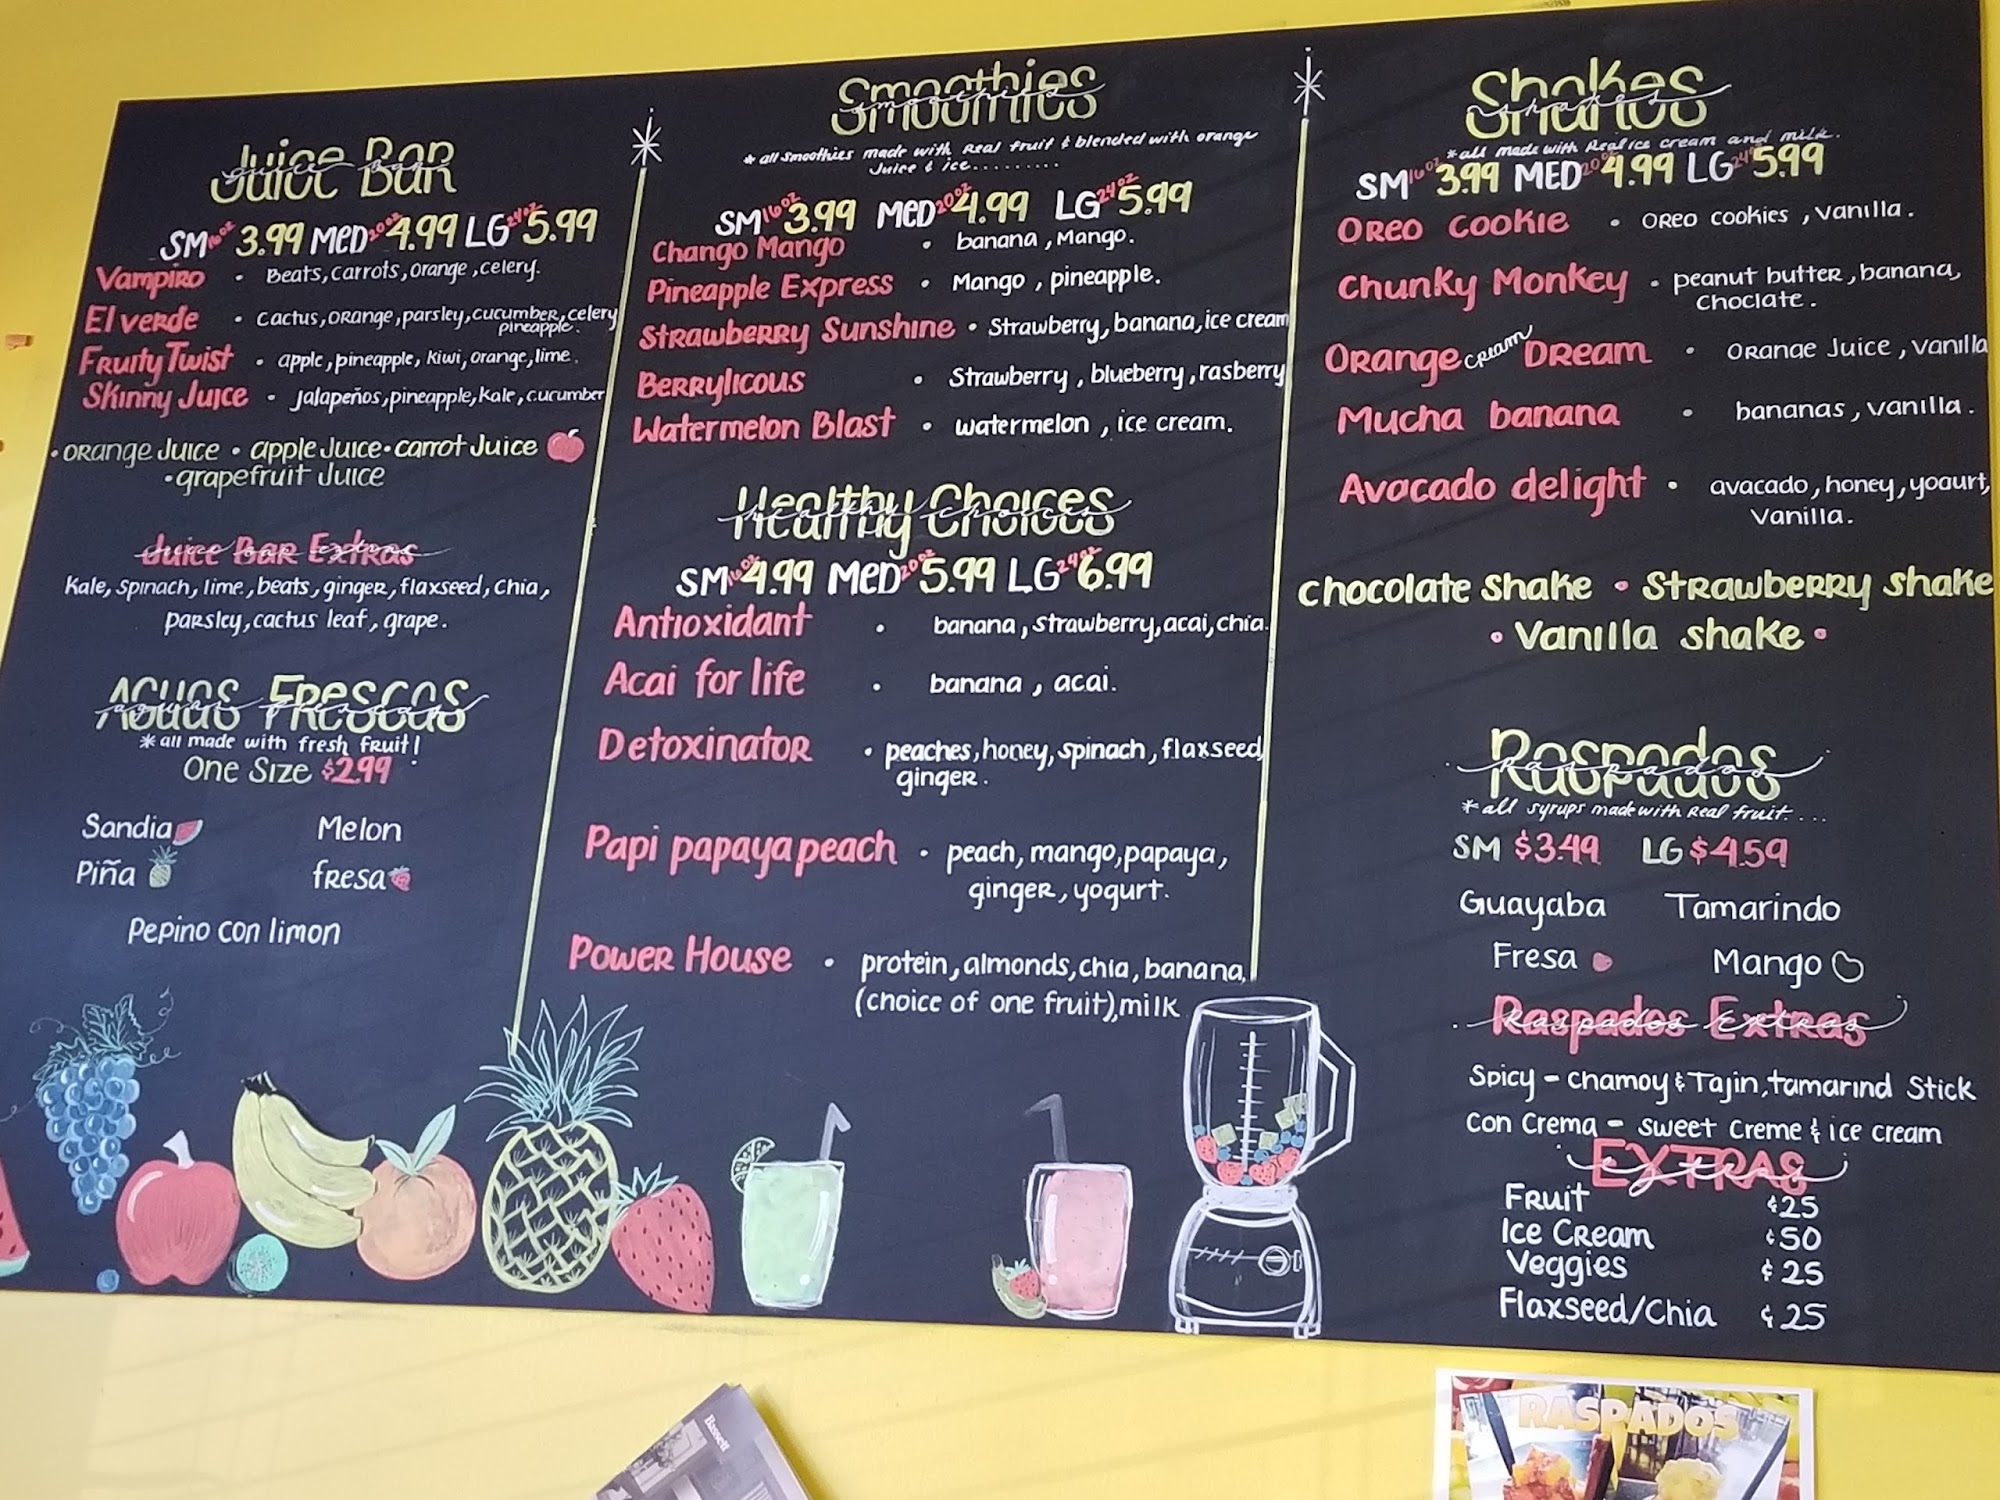 Juice Bar
juice bar
SM 16oz 3.99 MED 20oz 4.99 LG 24oz 5.99
Vampiro • Beats, carrots, orange, celery.
El verde • Cactus, orange, parsley, cucumber, celery
pineapple.
Fruity Twist • apple, pineapple, kiwi, orange, lime.
Skinny Juice • Jalapeños, pineapple, kale, cucumber
• orange Juice • apple Juice • carrot Juice
• grapefruit Juice
Juice Bar Extras
juice bar extras
Kale, Spinach, lime, beats, ginger, flaxseed, Chia,
parsley, cactus leaf, grape.
Aguas Frescas
aguas frescas
*all made with fresh fruit!
One Size $2.99
Sandia Melon
Piña fresa
Pepino con limon
Smoothies
smoothies
*all smoothies made with real fruit & blended with orange
Juice & ice.........
SM 16oz 3.99 MED 20oz 4.99 LG 24oz 5.99
Chango Mango • banana, Mango.
Pineapple Express • Mango, pineapple.
Strawberry Sunshine • Strawberry, banana, ice cream
Berrylicous • Strawberry, blueberry, rasberry
Watermelon Blast • watermelon, ice cream.
Healthy Choices
healthy choices
SM 16oz 4.99 MED 20oz 5.99 LG 24oz 6.99
Antioxidant • banana, strawberry, acai, chia.
Acai for life • banana, acai.
Detoxinator • peaches, honey, spinach, flaxseed,
ginger.
Papi papaya peach • peach, mango, papaya,
ginger, yogurt.
Power House • protein, almonds, chia, banana,
(choice of one fruit), milk
Shakes
shakes
*all made with Real ice cream and milk.
SM 16oz 3.99 MED 20oz 4.99 LG 24oz 5.99
Oreo Cookie • Oreo cookies, vanilla.
Chunky Monkey • peanut butter, banana,
Choclate.
Orange cream Dream • Orange Juice, vanilla
Mucha banana • bananas, vanilla.
Avocado delight • avacado, honey, yogurt,
Vanilla.
chocolate shake • Strawberry shake
• Vanilla shake •
Raspados
raspados
*all syrups made with real fruit....
SM $3.49 LG $4.59
Guayaba Tamarindo
Fresa Mango
Raspados Extras
raspados extras
Spicy - chamoy & Tajin, tamarind Stick
Con Crema - sweet creme & ice cream
Extras
extras
Fruit ¢25
Ice Cream ¢50
Veggies ¢25
Flaxseed/Chia ¢25
Bassett
RASPADOS